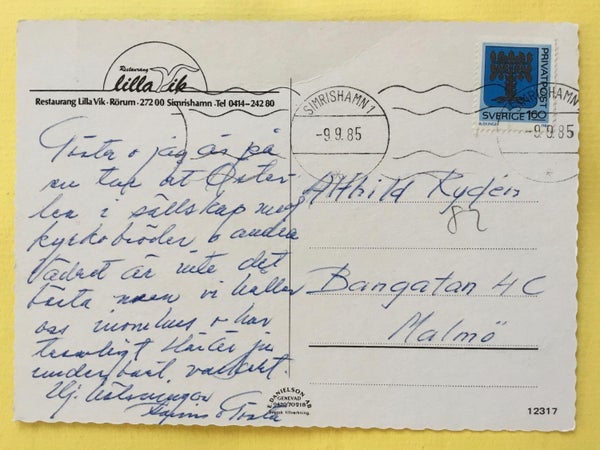 Restaurang
lilla Vik
Restaurang Lilla Vik · Rörum · 272 00 Simrishamn · Tel 0414-242 80
SIMRISHAMN 1
-9.9.85
SIMRISHAMN
-9.9.85
PRIVATPOST
SVERIGE 160
Gösta o jag är på
en tur at Öster
len i sällskap med
kyrkobröder o andra
Vädret är inte det
bästa men vi håller
oss inomhus o har
trevligt. Här är ju
underbart vackert
Hj. hälsningar
o Gösta
Alfhild Rydén
82
Bangatan 4 C
Malmö
DANIELSON AB
GENEVAD
0430/70218
Svensk tillverkning
12317